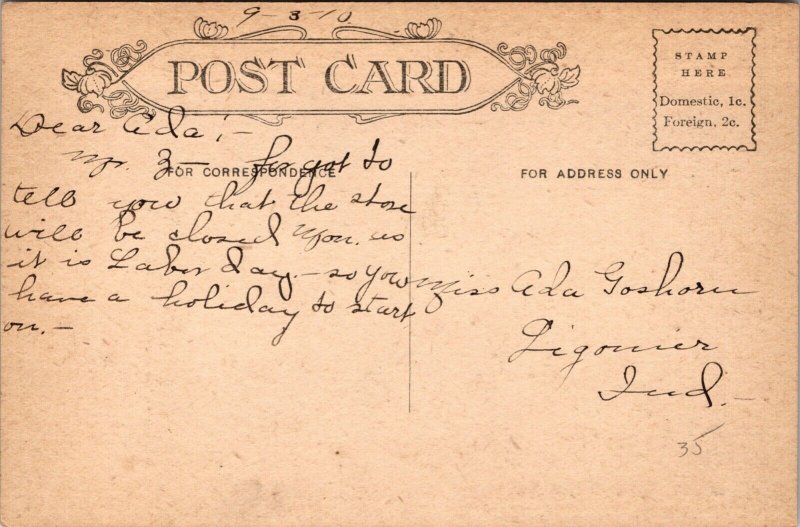 9-3-10
POST CARD
STAMP
HERE
Domestic, 1c.
Foreign, 2c.
FOR CORRESPONDENCE
Dear Ada;-
Mr. Z— forgot to
tell you that the store
will be closed Mon. as
it is Labor day.- so you
have a holiday to start
on.-
FOR ADDRESS ONLY
Miss Ada Goshorn
Ligonier
Ind.
35